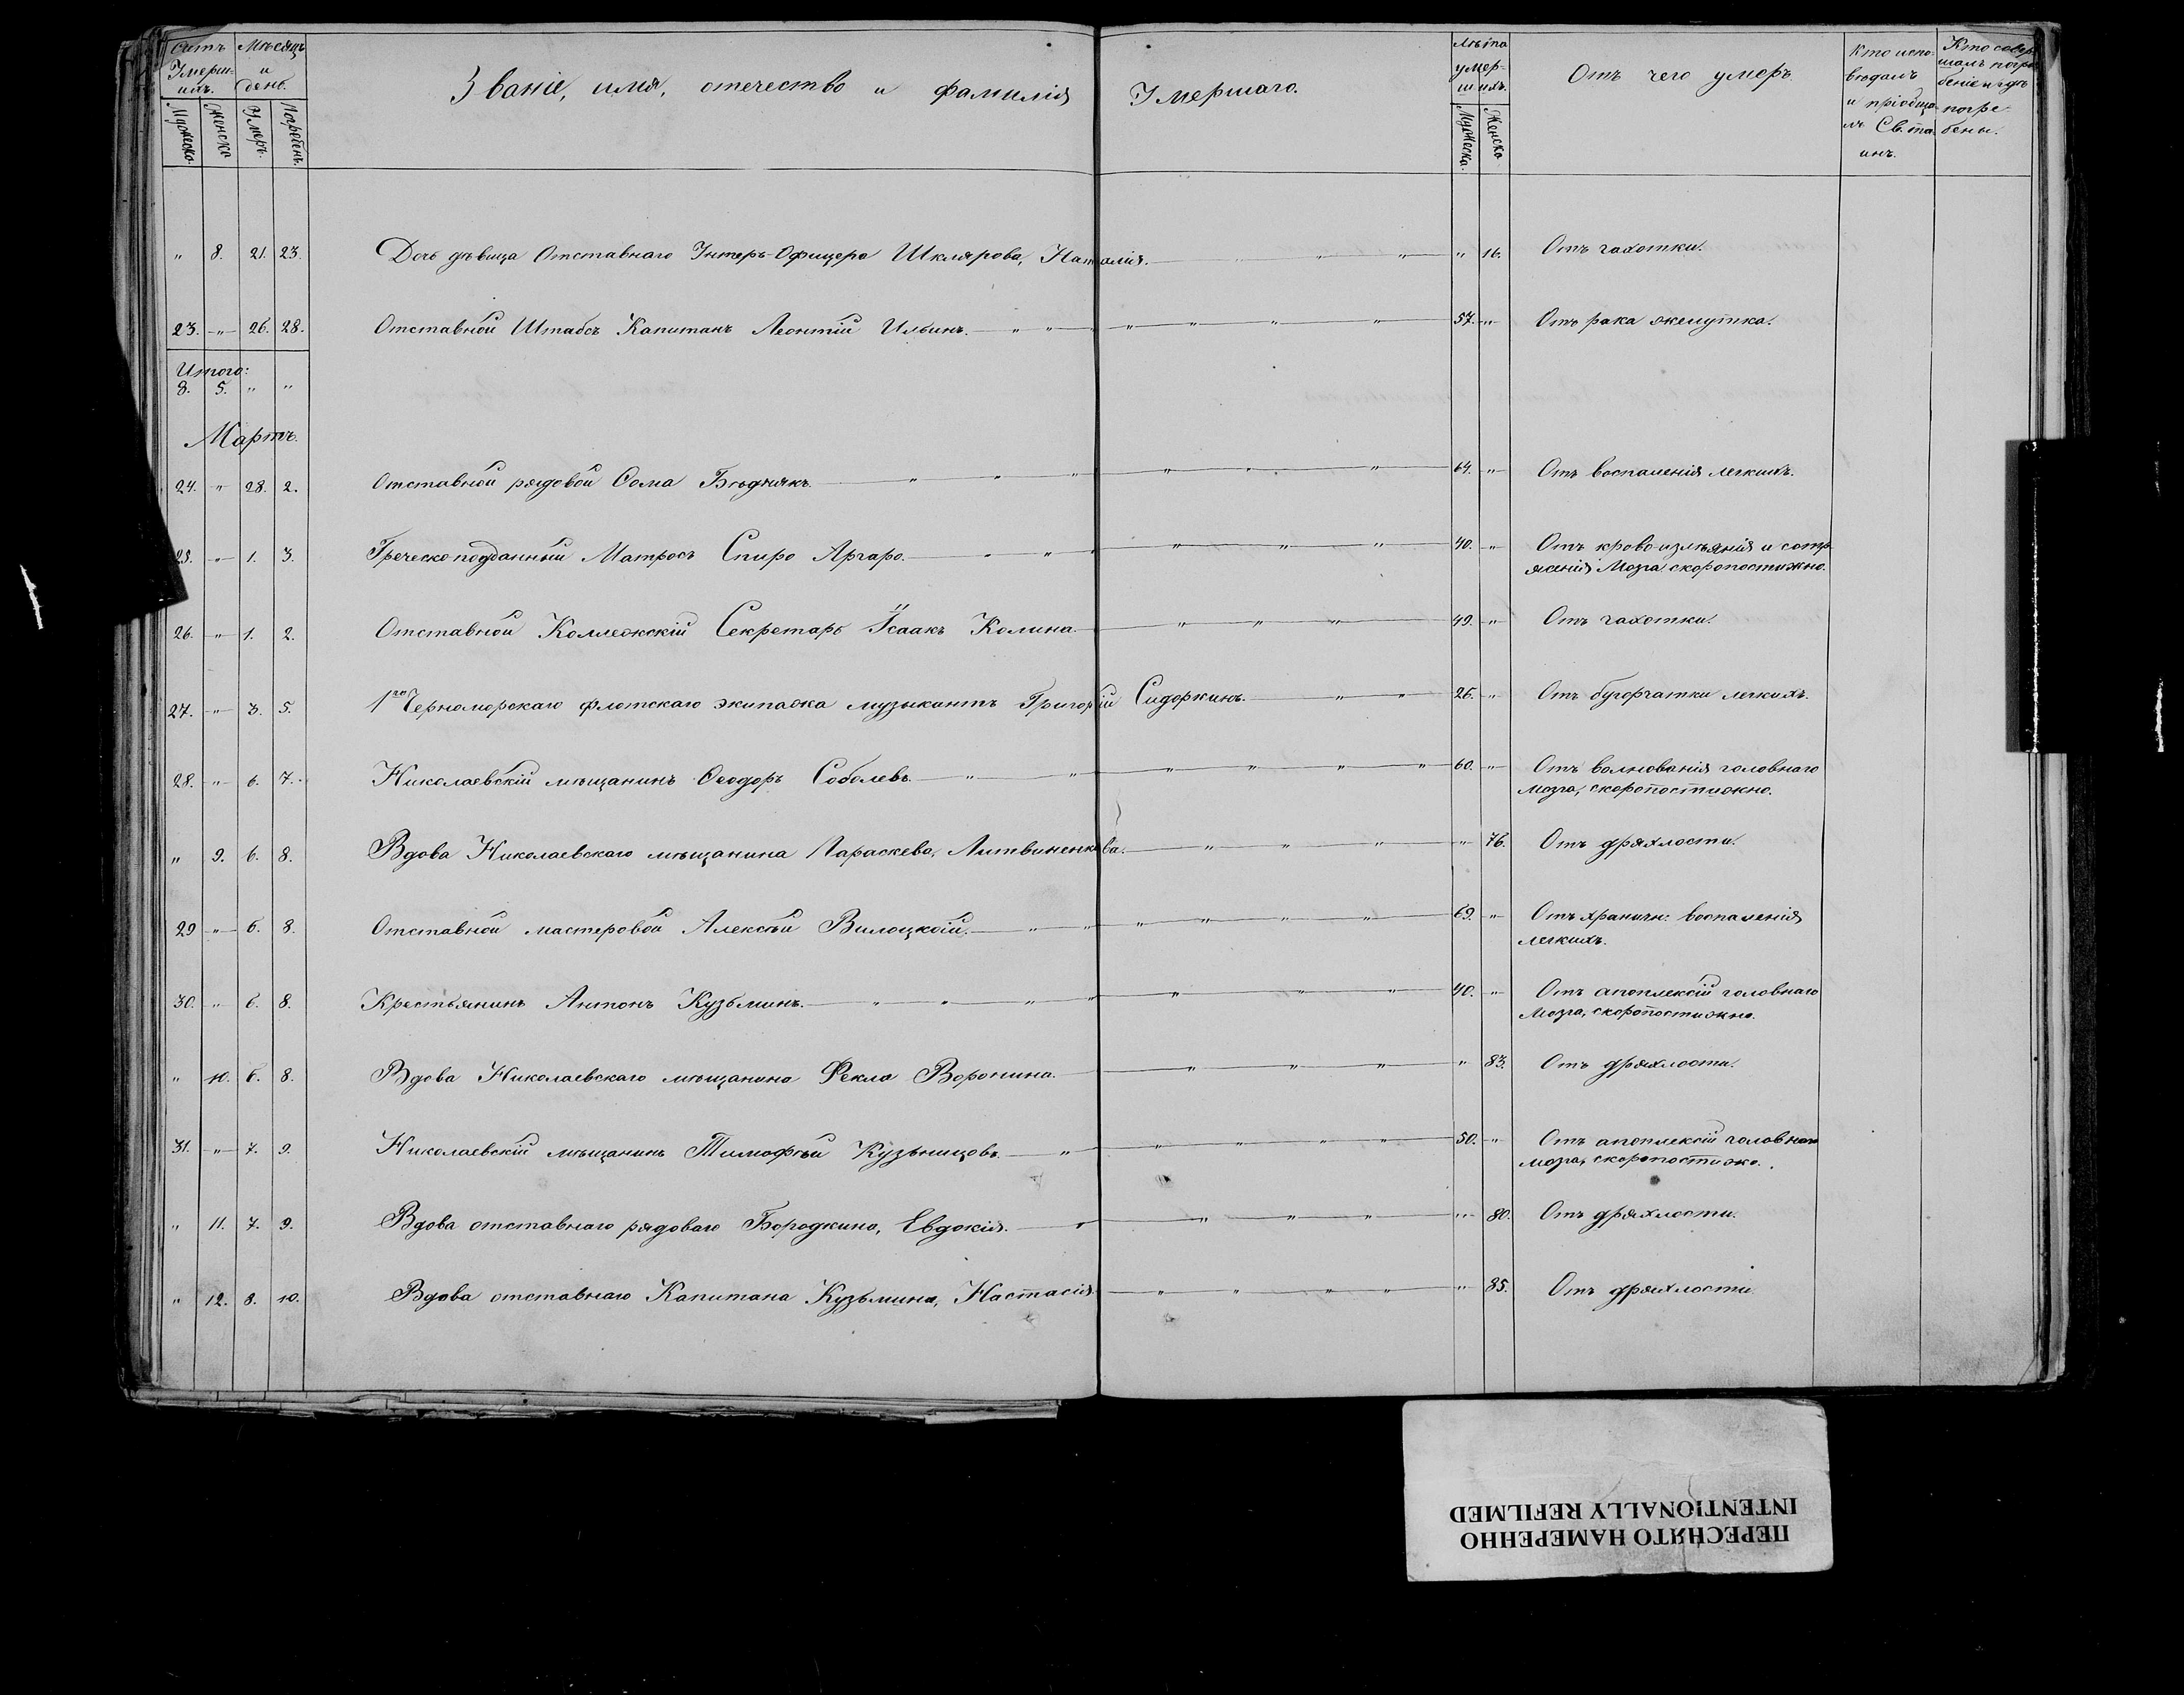 Счетъ Умерш-ихъ. Мѣсяцъ и день. Званіе, имя, отечество и фамилія Умершаго. Лѣта умер-шихъ. Отъ чего умеръ. Кто испо-вѣдалъ и пріобща-лъ Св. та-инъ. Кто совер-шалъ погре-беніе и гдѣ погре-бены.
Мужеска. Женска Умеръ. Погребенъ. Мужеска. Женска
" 8. 21. 23. Дочь дѣвица Отставнаго Унтеръ-Офицера Шклярова, Наталія. " 16. Отъ чахотки.
23. " 26. 28. Отставной Штабсъ Капитанъ Леонтій Ильинъ. 57. " Отъ рака желутка.
Итого:
8. 5. " "
Мартъ.
24. " 28. 2. Отставной рядовой Сома Бѣднякъ. 64. " Отъ воспаленія легкихъ.
25. " 1. 3. Греческоподданный Матросъ Спиро Аргаро. 40. " Отъ крово-изліянія и сотр-
ясенія Мозга скоропостижно.
26. " 1. 2. Отставной Коллежскій Секретарь Ісаакъ Колина. 49. " Отъ чахотки.
27. " 3. 5. 1го Черноморскаго флотскаго экипажа музыкантъ Григорій Сидоркинъ. 26. " Отъ бугорчатки легкихъ.
28. " 6. 7. Николаевскій мѣщанинъ Ѳеодоръ Соболевъ. 60. " Отъ волнованія головнаго
Мозга, скоропостижно.
" 9. 6. 8. Вдова Николаевскаго мѣщанина Параскева, Литвиненкова. " 76. Отъ дряхлости.
29 " 6. 8. Отставной мастеровой Алексѣй Вилоцкій. 69. " Отъ хранич: воспаленія
легкихъ.
30. " 6. 8. Крестьянинъ Антонъ Кузьминъ. 40. " Отъ апоплексіи головнаго
Мозга, скоропостижно.
" 10. 6. 8. Вдова Николаевскаго мѣщанина Фекла Воронина. " 83. Отъ дряхлости.
31. " 7. 9. Николаевскій мѣщанинъ Тимофѣй Кузьницовъ. 50. " Отъ апоплексіи головнаго
мозга, скоропостижно.
" 11. 7. 9. Вдова отставнаго рядоваго Бородкина, Евдокія. " 80. Отъ дряхлости.
" 12. 8. 10. Вдова отставнаго Капитана Кузьмина, Настасія. " 85. Отъ дряхлости.
ПЕРЕСНЯТО НАМЕРЕННО
INTENTIONALLY REFILMED